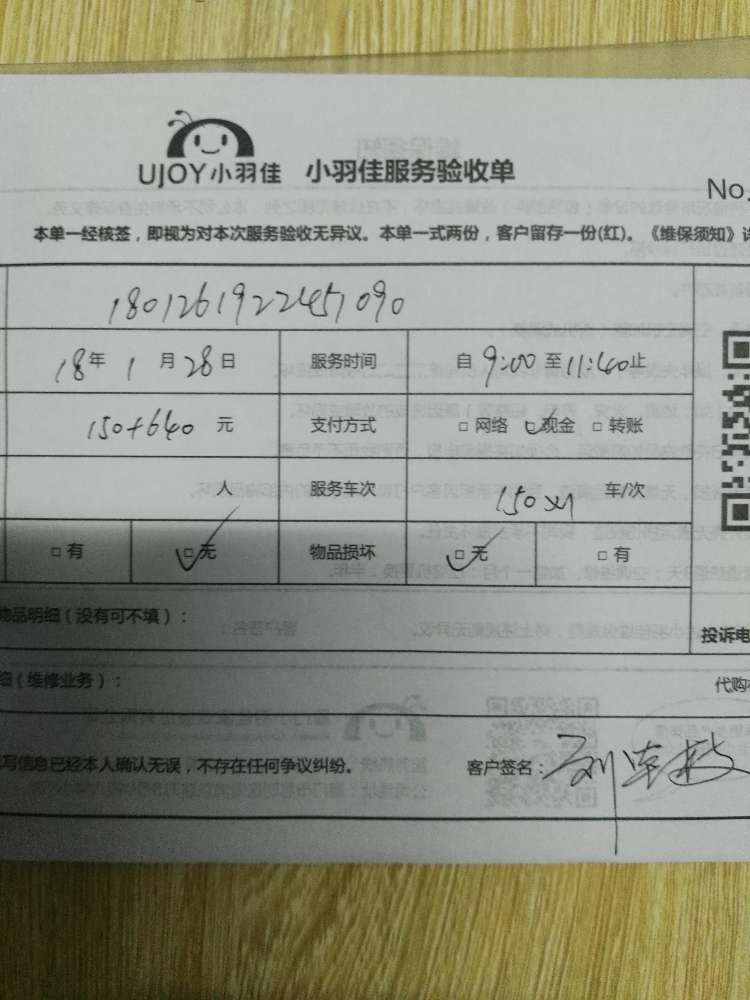 UJOY小羽佳 小羽佳服务验收单
No.
本单一经核签，即视为对本次服务验收无异议。本单一式两份，客户留存一份(红)。《维保须知》
1801261922451090
18年 1月 28日 服务时间 自 9:00 至 11:40止
150+640 元 支付方式 □ 网络 □现金 □ 转账
人 服务车次 150×1 车/次
□ 有 □ 无 物品损坏 □ 无 □ 有
物品明细（没有可不填）：
投诉电
（维修业务）：
代购
写信息已经本人确认无误，不存在任何争议纠纷。 客户签名：